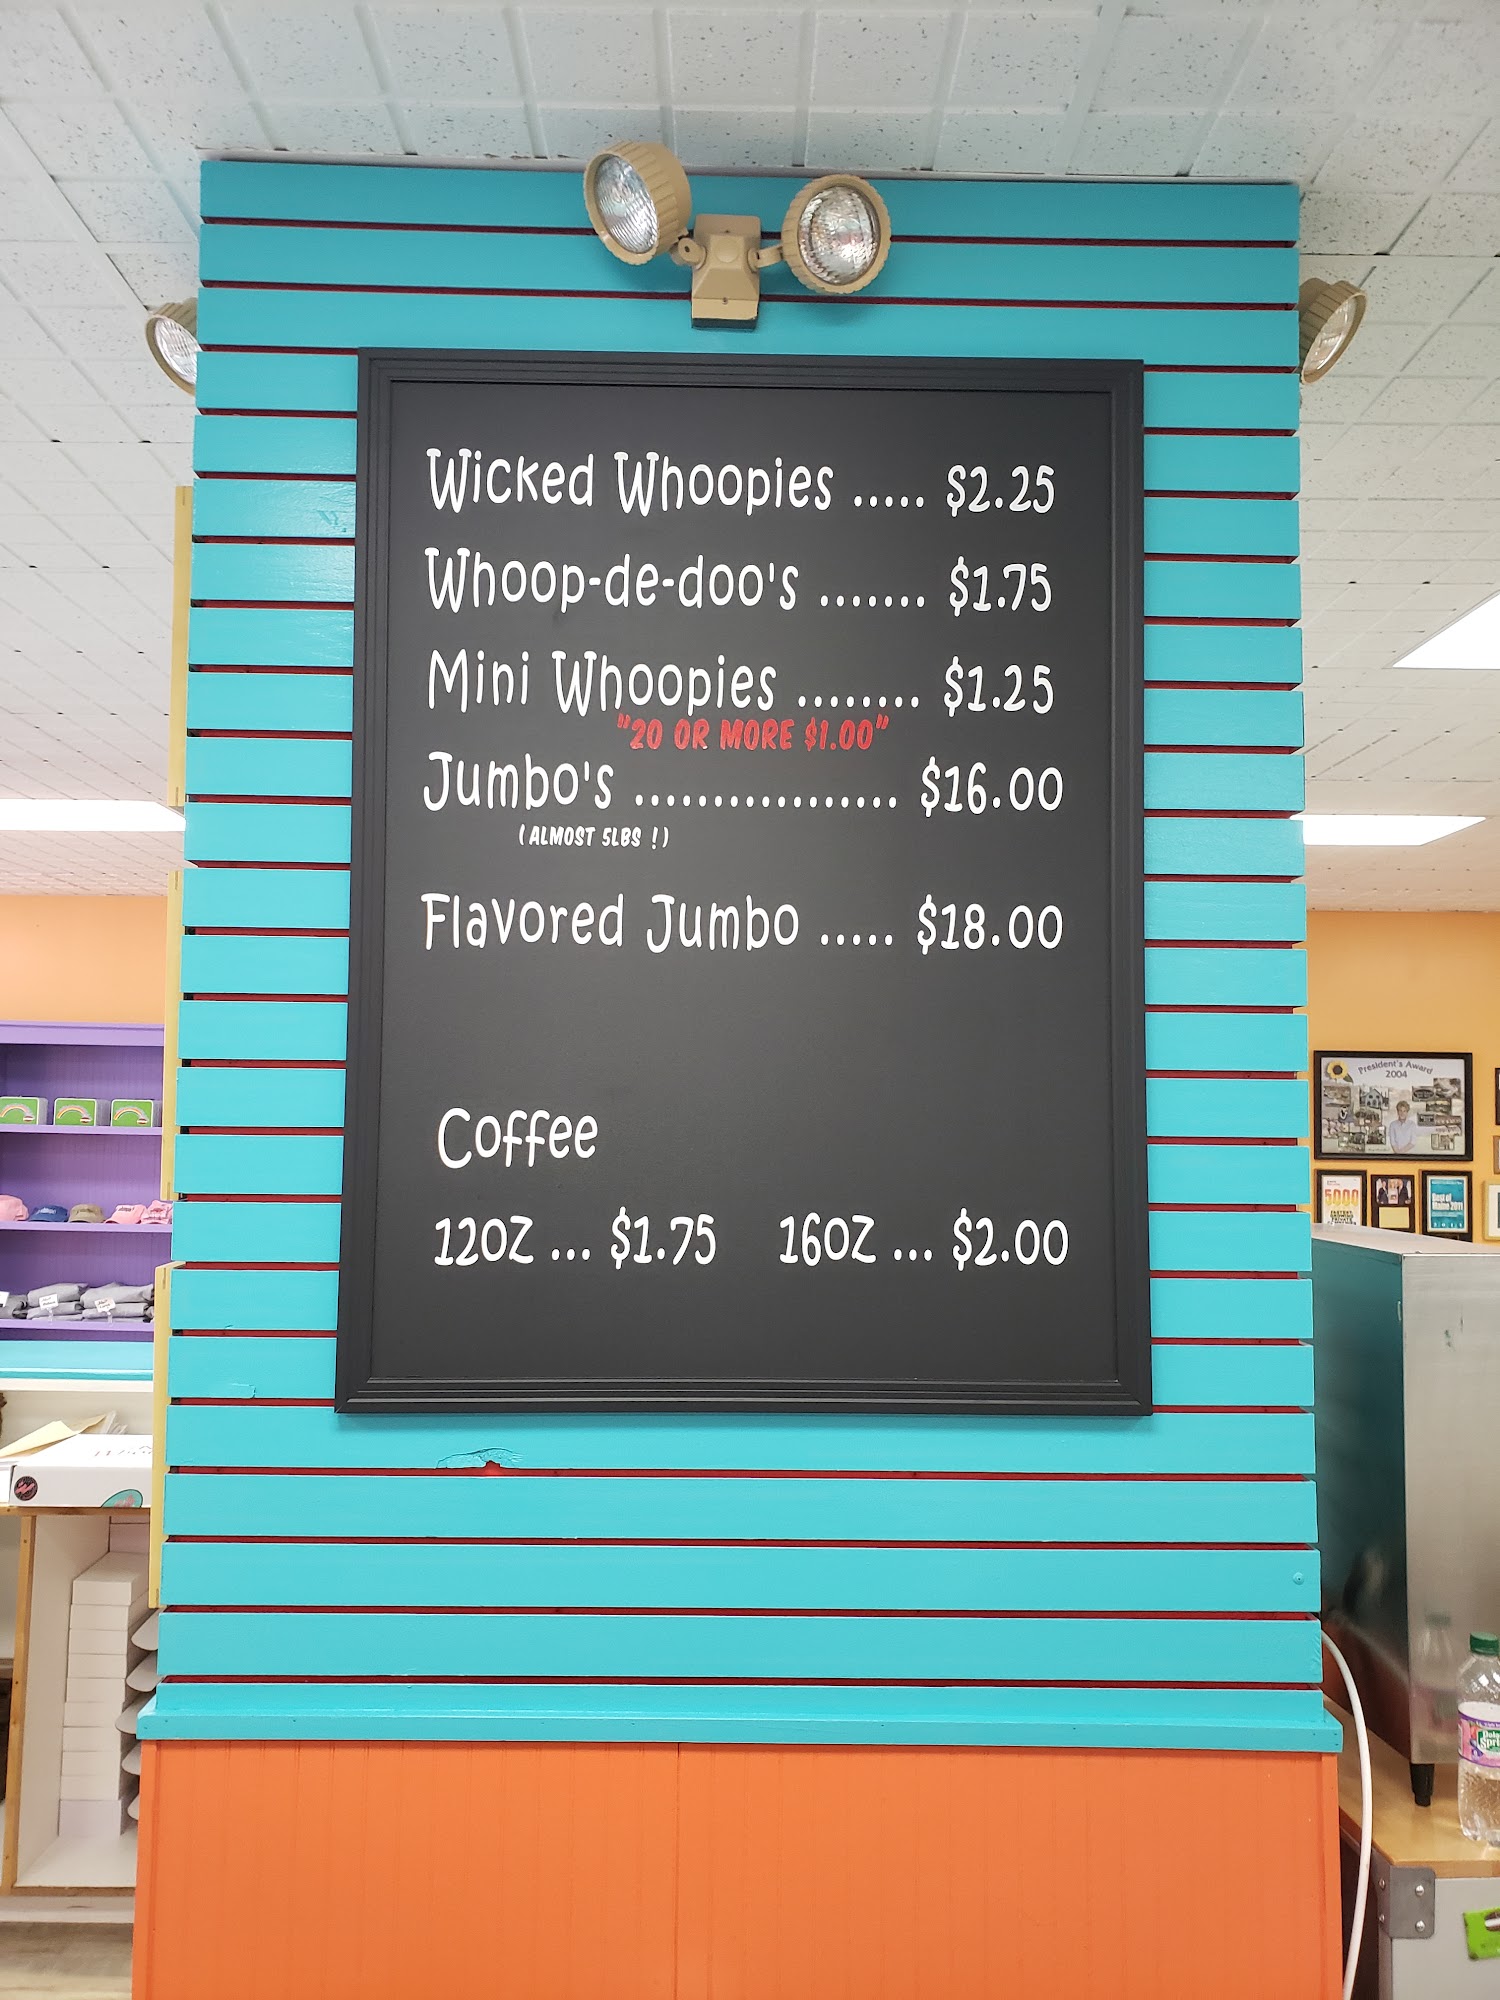 Wicked Whoopies ..... $2.25
Whoop-de-doo's ....... $1.75
Mini Whoopies ........ $1.25
"20 OR MORE $1.00"
Jumbo's ................. $16.00
(ALMOST 5LBS !)
Flavored Jumbo ..... $18.00
Coffee
12OZ ... $1.75 16OZ ... $2.00
President's Award
2004
5000
Best of
Maine 2011